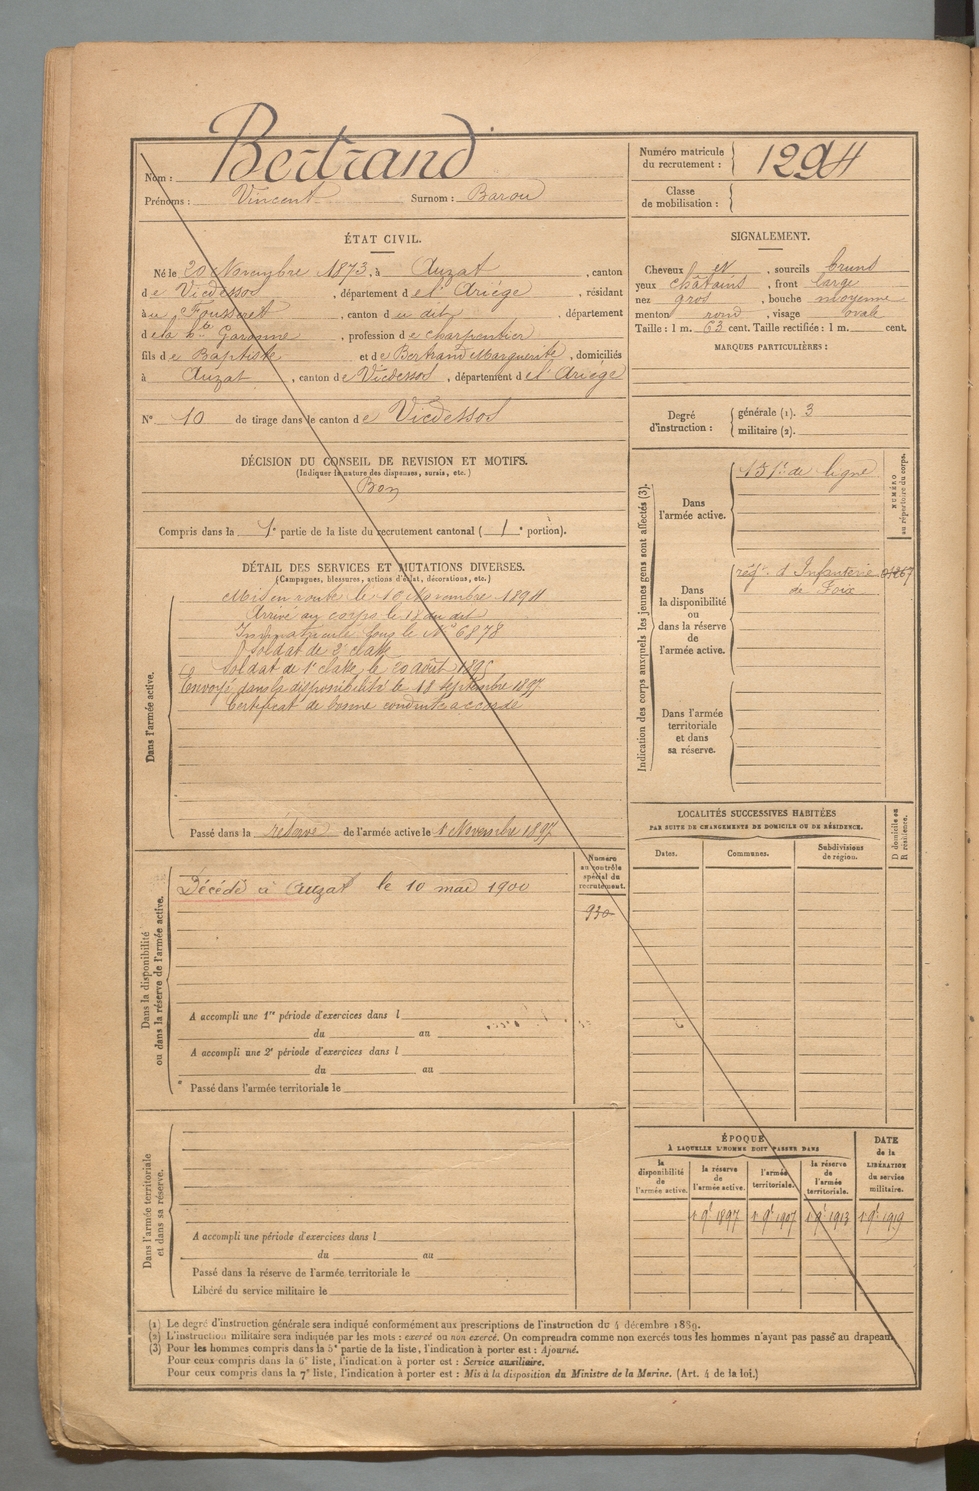 Nom : Bertrand
Prénoms : Vincent Surnom : Barou
Numéro matricule du recrutement : 1294
Classe de mobilisation :
ÉTAT CIVIL.
Né le 20 Novembre 1873, à Auzat, canton
de Vicdessos, département de l'Ariège, résidant
au Fousseret, canton du dit, département
de la hte Garonne, profession de charpentier
fils de Baptiste et de Bertrand Marguerite, domiciliés
à Auzat, canton de Vicdessos, département de l'Ariège
N° 10 de tirage dans le canton de Vicdessos
DÉCISION DU CONSEIL DE REVISION ET MOTIFS.
(Indiquer la nature des dispenses, sursis, etc.)
Bon
Compris dans la 1e partie de la liste du recrutement cantonal ( 1e portion).
SIGNALEMENT.
Cheveux et, sourcils bruns
yeux châtains, front large
nez gros, bouche moyenne
menton rond, visage ovale
Taille : 1 m. 63 cent. Taille rectifiée : 1 m. cent.
MARQUES PARTICULIÈRES :
Degré d'instruction : générale (1). 3
militaire (2).
DÉTAIL DES SERVICES ET MUTATIONS DIVERSES.
(Campagnes, blessures, actions d'éclat, décorations, etc.)
Dans l'armée active.
Mis en route le 16 Novembre 1894
Arrivé au corps le 18 du dit
Immatriculé sous le N° 6878
Soldat de 2e classe
Soldat de 1e classe le 20 août 1895
Envoyé dans la disponibilité le 18 septembre 1897
Certificat de bonne conduite accordé
Passé dans la réserve de l'armée active le 1 Novembre 1897
Indication des corps auxquels les jeunes gens sont affectés (3).
NUMÉRO au répertoire du corps.
Dans l'armée active.
de ligne
Dans la disponibilité ou dans la réserve de l'armée active.
régt. d'Infanterie
de Foix
Dans l'armée territoriale et dans sa réserve.
Dans la disponibilité ou dans la réserve de l'armée active.
Numéro au contrôle spécial du recrutement.
930
Décédé à Auzat le 10 mai 1900
A accompli une 1re période d'exercices dans l
du au
A accompli une 2e période d'exercices dans l
du au
Passé dans l'armée territoriale le
LOCALITÉS SUCCESSIVES HABITÉES
PAR SUITE DE CHANGEMENTS DE DOMICILE OU DE RÉSIDENCE.
D domicile ou R résidence.
Dates. Communes. Subdivisions de région.
Dans l'armée territoriale et dans sa réserve.
A accompli une période d'exercices dans l
du au
Passé dans la réserve de l'armée territoriale le
Libéré du service militaire le
ÉPOQUE
À LAQUELLE L'HOMME DOIT PASSER DANS
la disponibilité de l'armée active.
la réserve de l'armée active.
l'armée territoriale.
la réserve de l'armée territoriale.
DATE de la LIBÉRATION du service militaire.
1 9e 1897 1 9e 1907 1 9e 1913 1 9e 1919
(1) Le degré d'instruction générale sera indiqué conformément aux prescriptions de l'instruction du 4 décembre 1889.
(2) L'instruction militaire sera indiquée par les mots : exercé ou non exercé. On comprendra comme non exercés tous les hommes n'ayant pas passé au drapeau.
(3) Pour les hommes compris dans la 5e partie de la liste, l'indication à porter est : Ajourné.
Pour ceux compris dans la 6e liste, l'indication à porter est : Service auxiliaire.
Pour ceux compris dans la 7e liste, l'indication à porter est : Mis à la disposition du Ministre de la Marine. (Art. 4 de la loi.)